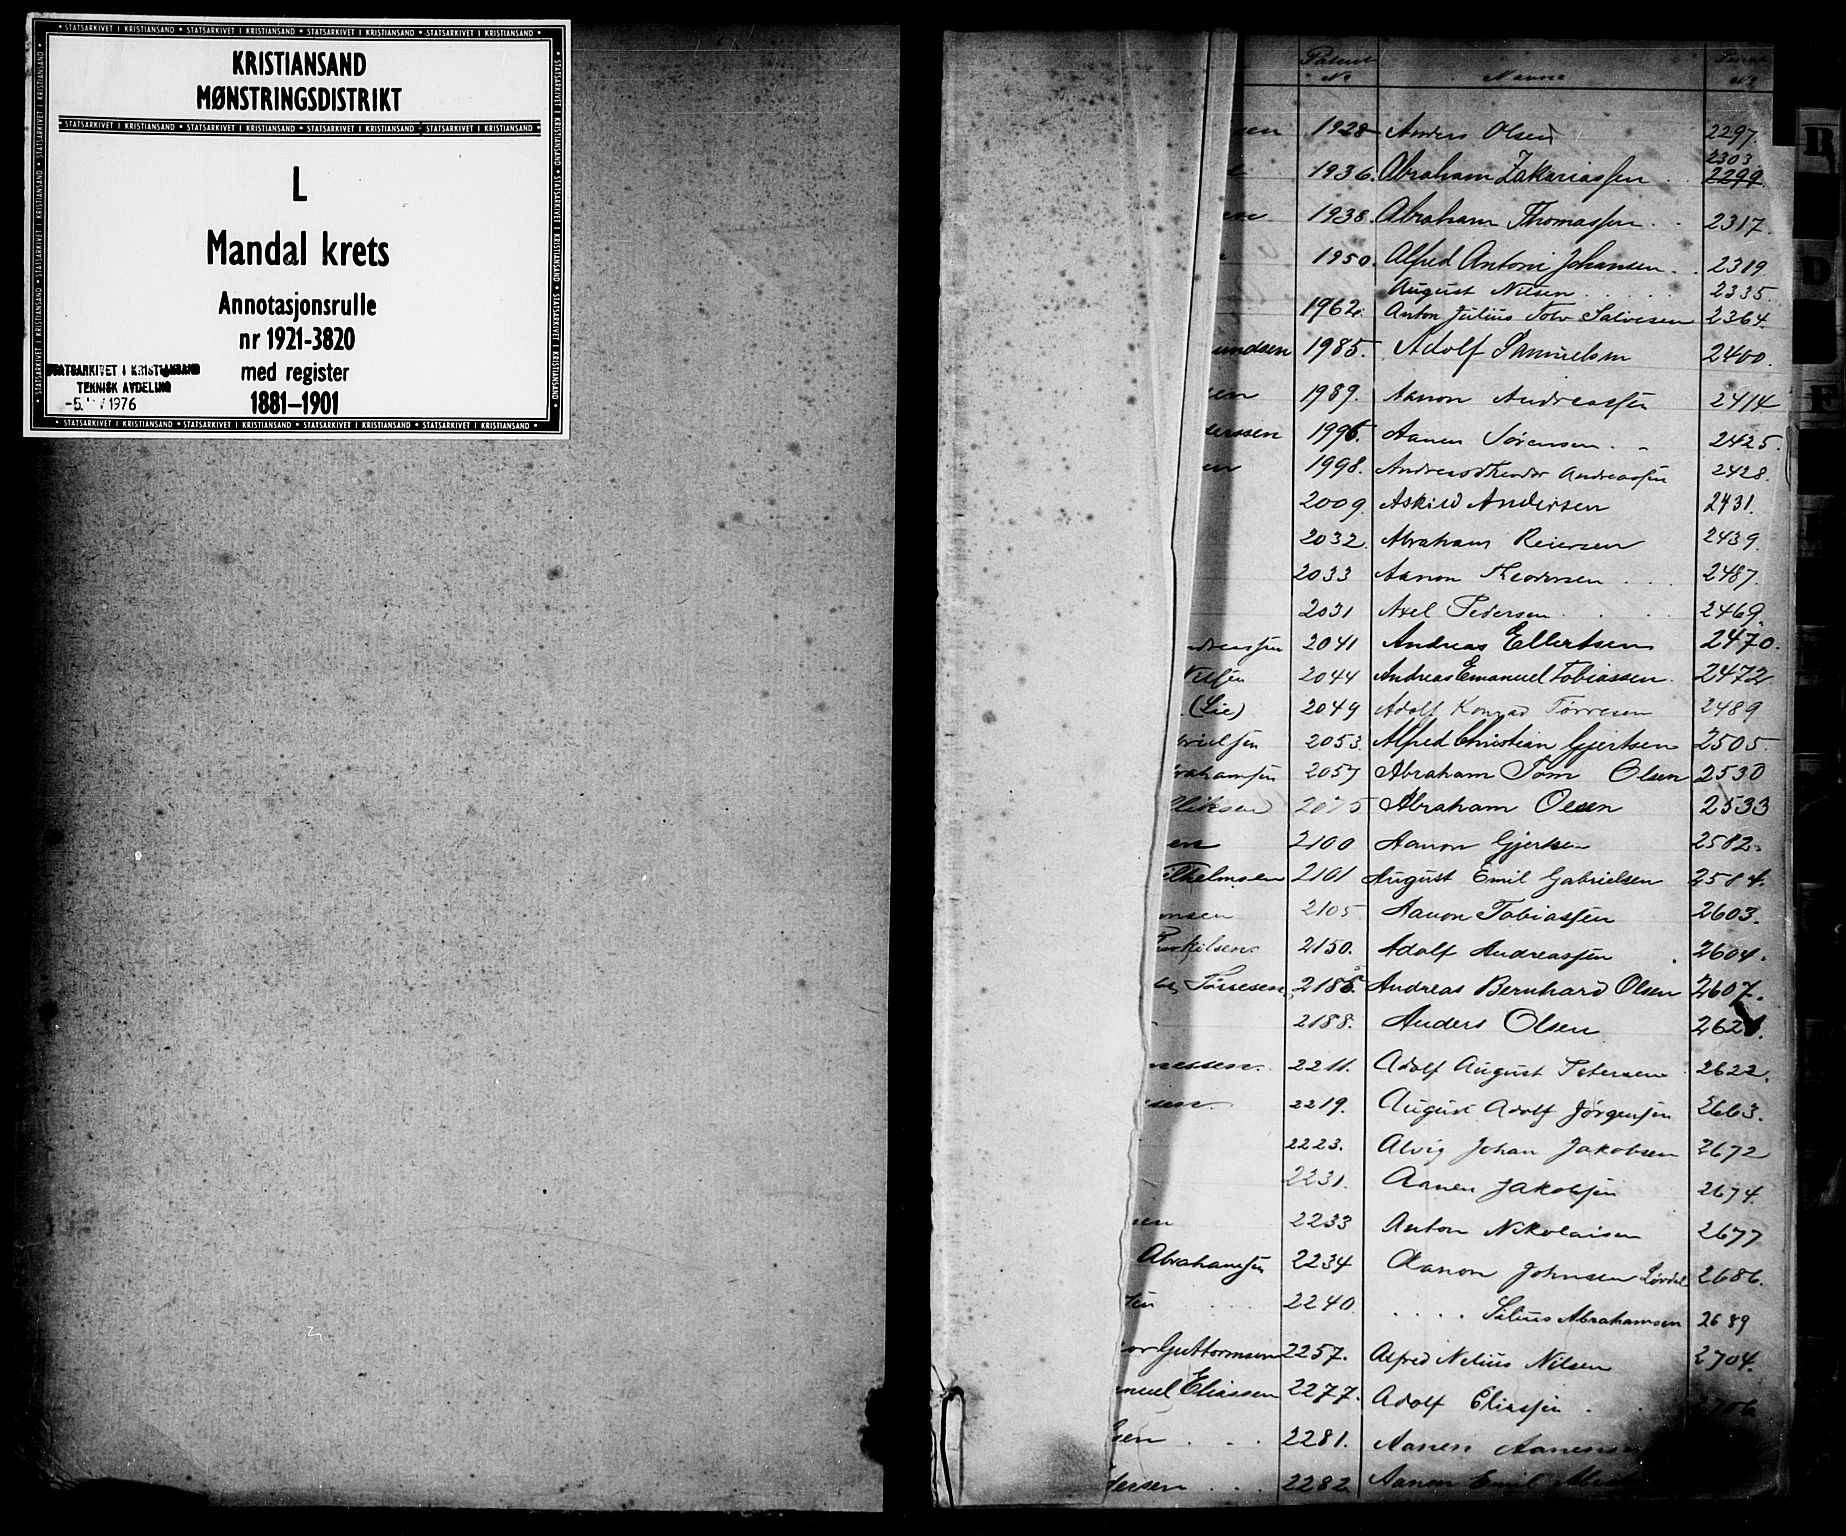 STATSARKIVET I KRISTIANSAND
KRISTIANSAND
MØNSTRINGSDISTRIKT
L
Mandal krets
Annotasjonsrulle
nr 1921-3820
med register
1881–1901
STATSARKIVET I KRISTIANSAND
TEKNISK AVDELING
1976
Patent No Navne Patent No
sen 1928 Anders Olsen 2297
2303
1936. Abraham Zakariassen 2299
en 1938. Abraham Thomassen 2317.
1950. Alfred Antoni Johansen 2319
August Nilsen 2335.
1962. Anton Julius Tolv Salvesen 2364.
undsen 1985. Adolf Samuelsen 2400.
sen 1989. Aanon Andreassen 2414
derssen 1996. Aanen Sørensen 2425.
en 1998. Andreas Theodor Andreassen 2428.
2009. Askild Andersen 2431.
2032. Abraham Reiersen 2439.
2033 Aanon Theodorsen 2487.
2031 Axel Pedersen 2469.
ndreassen 2041 Andreas Ellertsen 2470.
Nilsen 2044 Andreas Emanuel Tobiassen 2472.
(Lie) 2049 Adolf Konrad Tørresen 2489
brielsen 2053. Alfred Christian Gjertsen 2505.
brahamsen 2057 Abraham Tom Olsen 2530
Abraham Olsen 2533
en 2100 Aanon Gjertsen 2582.
ilhelmsen 2101 August Emil Gabrielsen 2584.
nsen 2105 Aanon Tobiassen 2603.
Torkilsen. 2150. Adolf Andreassen 2604.
Tørresen 2185. Andreas Bernhard Olsen 2607.
2188. Anders Olsen 2621.
nessen. 2211. Adolf August Petersen 2622.
sen. 2219. August Adolf Jørgensen 2663.
2223. Alvig Johan Jakobsen 2672
2231. Aanen Jakobsen 2674.
sen 2233 Anton Nikolaisen 2677
Abrahamsen 2234 Aanon Johnsen Lövdal 2686.
sen 2240 Silius Abrahamsen 2689
or Guttormsen 2257. Alfred Nelius Nilsen 2704.
nuel Eliassen 2277. Adolf Eliassen 2706
sen 2281. Aanen Aanensen
dersen 2282 Aanon Emil
B
D
F